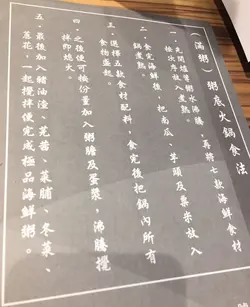 （滿粥）粥底火鍋食法
一．先開爐等粥水沸騰，再將七款海鮮食材
按次序放入煮熟。
二．食完海鮮後，把南瓜、芋頭及粟米放入
鍋煮熟。
三．選擇五款食材配料，食完後把鍋內所有
食物盛起。
四．之後便可按份量加入粥膽及蛋漿，沸騰攪
拌即熄火。
五．最後加入豬油渣、芫茜、菜脯、冬菜、
蔥花，一起攪拌便完成極品海鮮粥。